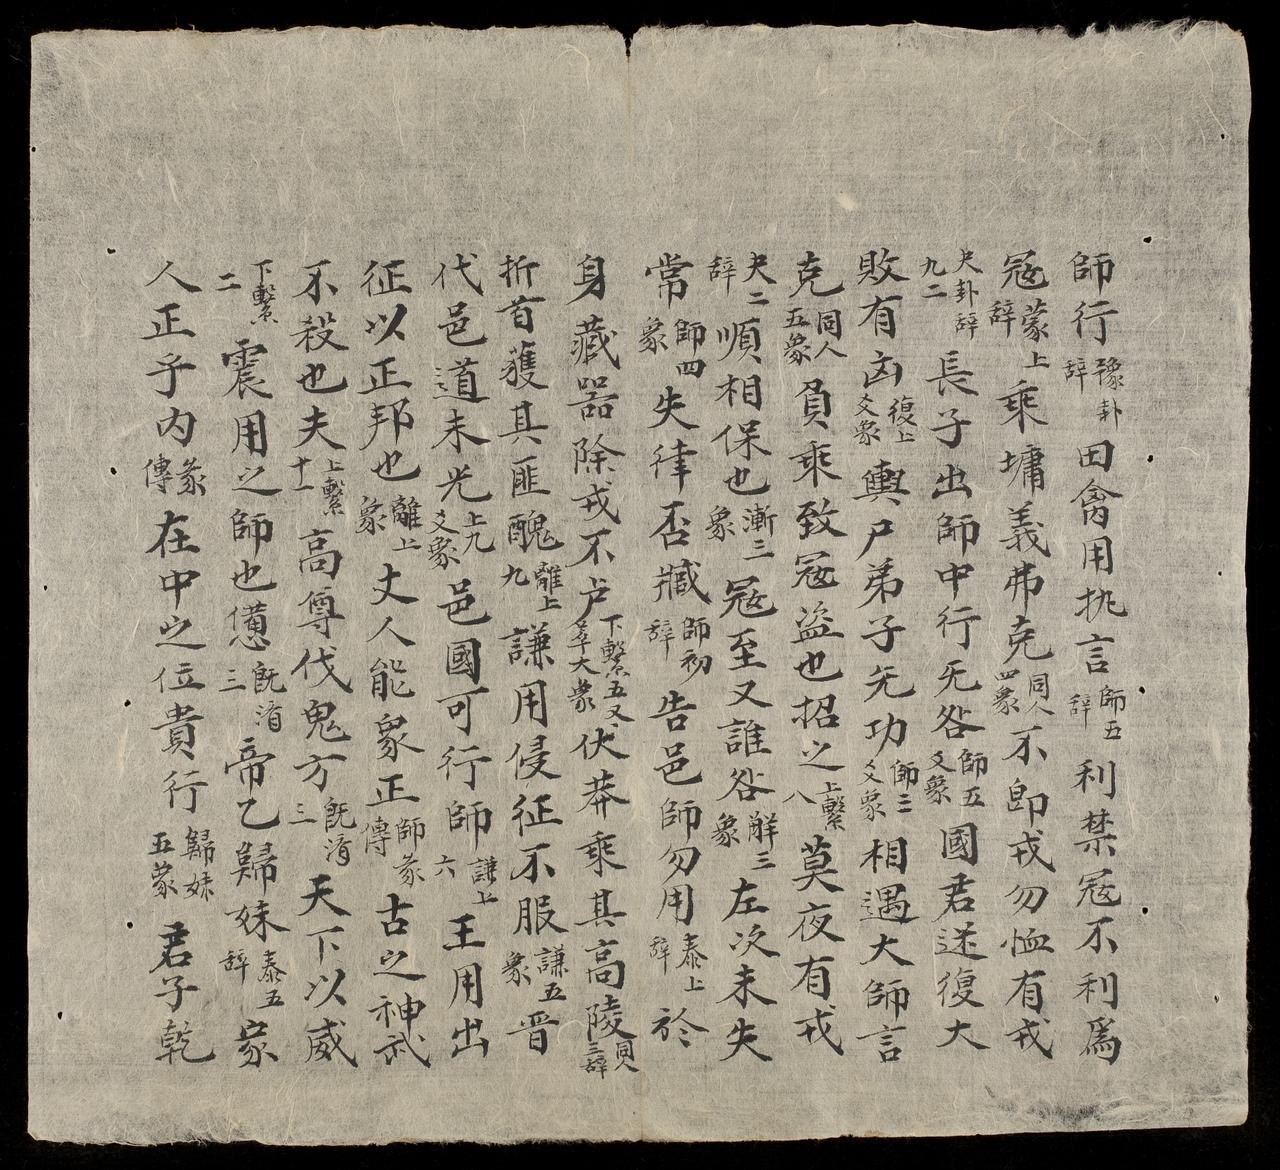 師行豫卦辞田禽用执言師五辞利禁冦不利爲
冦蒙上辞乘墉義弗克同人四象不卽戎勿恤有戎
夬卦辞九二長子出師中行无咎師五爻象國君迷復大
敗有凶復上爻象輿尸弟子无功師三爻象相遇大師言
克同人五象負乘致冦盗也招之上繫八莫夜有戎
夬二辞順相保也漸三象冦至又誰咎解三象左次未失
常師四象失律否臧師初辞告邑師勿用泰上辞於
身藏器除戎不下繫五又萃大象伏莽乘其高陵同人三辞
折首獲其匪醜離上九謙用侵征不服謙五象晋
伐邑道未光上九爻象邑國可行師謙上六王用出
征以正邦也離上象丈人能衆正師彖傳古之神武
不殺也夫上繫十一高尊伐鬼方旣濟三天下以威
下繫二震用之師也憊旣濟三帝乙歸妹泰五辞家
人正乎内彖傳在中之位貴行歸妹五象君子乾